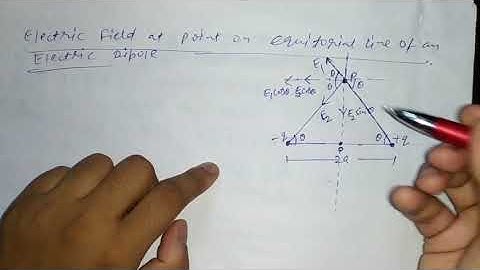 Electric field at point on equitorial line of an
Electric Dipole
E₁ P
θ θ
θ
E₁cosθ E₂cosθ
E₂ E₂ sinθ
-q θ θ +q
2a